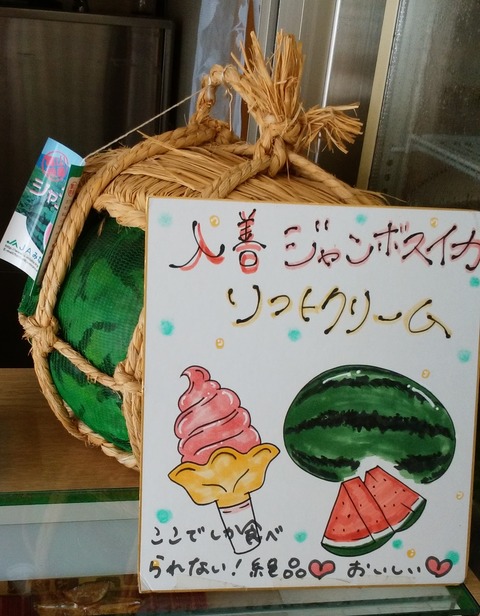 入善 ジャンボスイカ
ソフトクリーム
ここでしか食べ
られない！絶品♥ おいしい♥
ジャ
JAみな